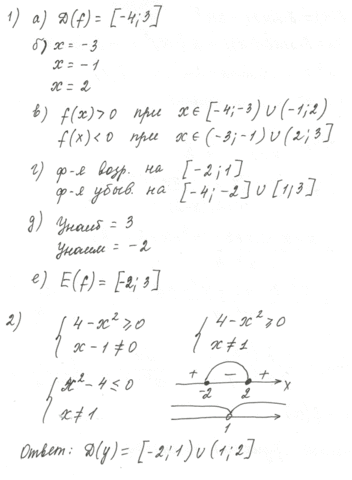 1) а) D(f) = [-4;3]
б) x = -3
x = -1
x = 2
в) f(x)>0 при x∈[-4;-3)∪(-1;2)
f(x)<0 при x∈(-3;-1)∪(2;3]
г) ф-я возр. на [-2;1]
ф-я убыв. на [-4;-2]∪[1;3]
д) Yнаиб = 3
Yнаим = -2
е) E(f) = [-2;3]
2) { 4-x² ≥ 0 { 4-x² ≥ 0
x-1 ≠ 0 x ≠ 1
{ x²-4 ≤ 0 + - +
x ≠ 1 -2 2 x
1
Ответ: D(y) = [-2;1)∪(1;2]